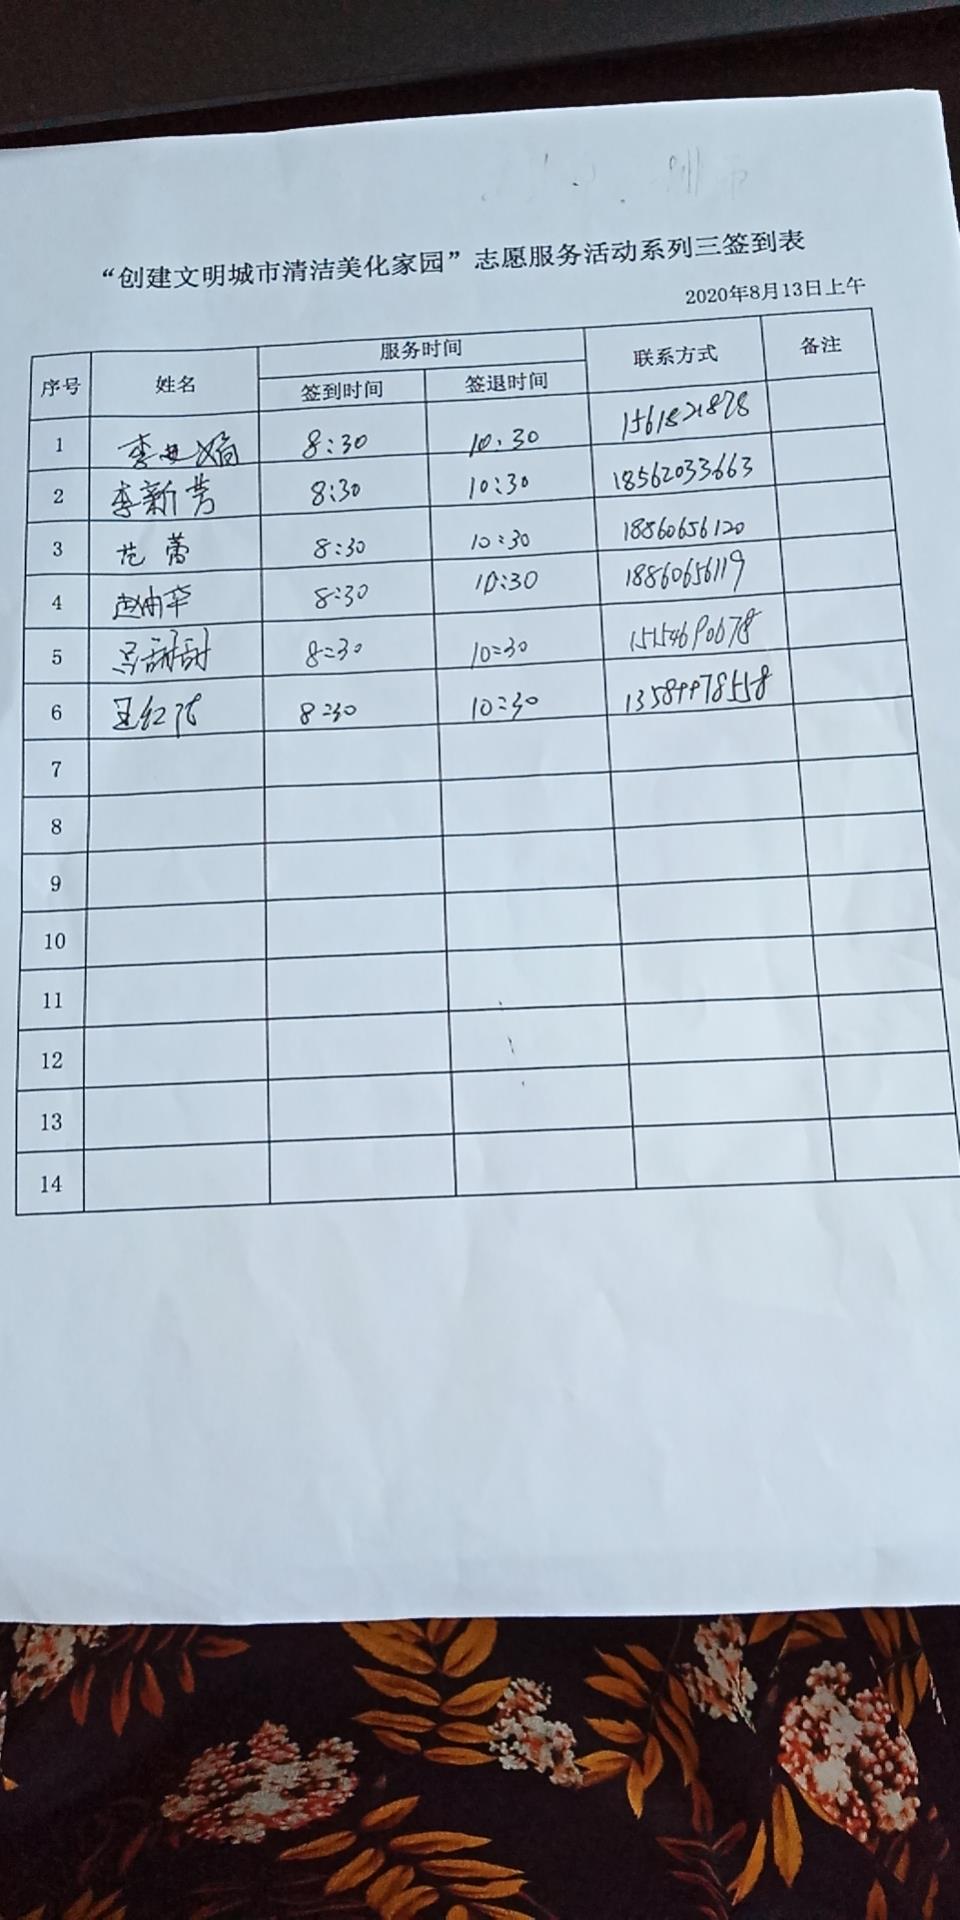 “创建文明城市清洁美化家园”志愿服务活动系列三签到表
2020年8月13日上午
序号 姓名 服务时间 联系方式 备注
签到时间 签退时间
1 李 娟 8:30 10:30 1561821878
2 李新芳 8:30 10:30 18562033663
3 范蕾 8:30 10:30 18860656120
4 赵 8:30 10:30 18860656119
5 马甜甜 8:30 10:30 15154690678
6 王红 8:30 10:30 13589978558
7
8
9
10
11
12
13
14